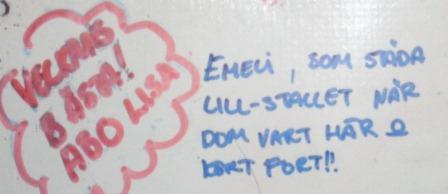 VECKANS
BÄSTA!
ABO LISA
EMELI, SOM STÄDA
LILL-STALLET NÄR
DOM VART HÄR O
KÖRT FORT!!